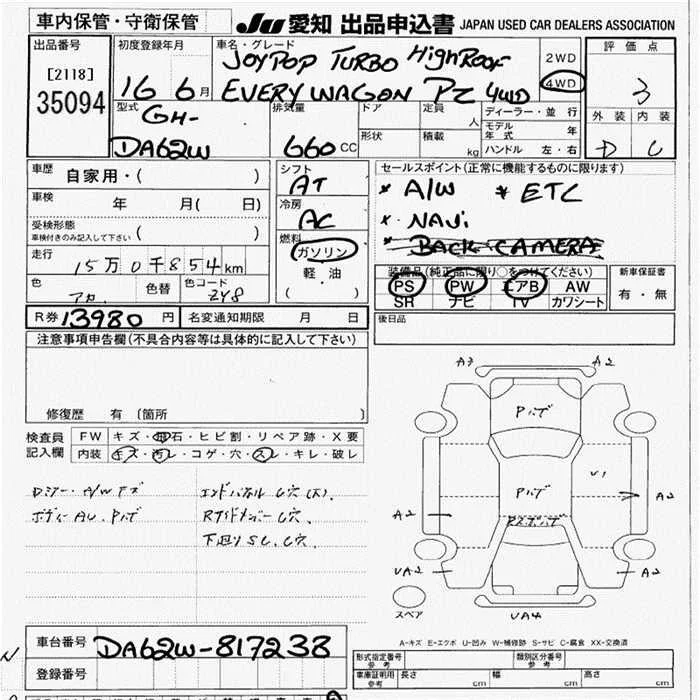 車内保管・守衛保管 JU 愛知 出品申込書 JAPAN USED CAR DEALERS ASSOCIATION
出品番号
[2118]
35094
初度登録年月
16 6月
車名・グレード
JOYPOP TURBO HighRoof
EVERY WAGON PZ 4WD
2WD
4WD
評価点
3
外装 内装
D C
型式
GH-
DA62W
排気量
660 CC
ドア
定員 人
形状
積載 kg
ディーラー・並行
モデル年式 年
ハンドル 左・右
車歴 自家用・( )
車検 年 月( 日)
受検形態
車検付きのみ記入して下さい ( )
走行 15万0千854km
色
アカ
色替
色コード
ZY8
シフト
AT
冷房
AC
燃料
ガソリン
軽・油
( )
セールスポイント(正常に機能するものに限ります)
* A/W * ETC
* Navi
BACK CAMERA
装備品(純正品に限り○をつけてください)
PS PW エアB AW
SR ナビ TV カワシート
新車保証書
有・無
R券 13980 円 名変通知期限 月 日
後日品
注意事項申告欄(不具合内容等は具体的に記入して下さい)
修復歴 有 〔箇所 〕
検査員
記入欄
FW キズ・飛石・ヒビ割・リペア跡・X要
内装 キズ・汚レ・コゲ・穴・スレ・キレ・破レ
A3 A2
Pハゲ
Pハゲ
U1
A2
A2
UA2
A2
UA4
スペア
A-キズ E-エクボ U-凹み W-補修跡 S-サビ C-腐食 XX-交換済
車台番号 DA62W-817238
登録番号
形式指定番号
参考
類別区分番号
参考
車庫証明用
参考
長さ cm 幅 cm 高さ cm